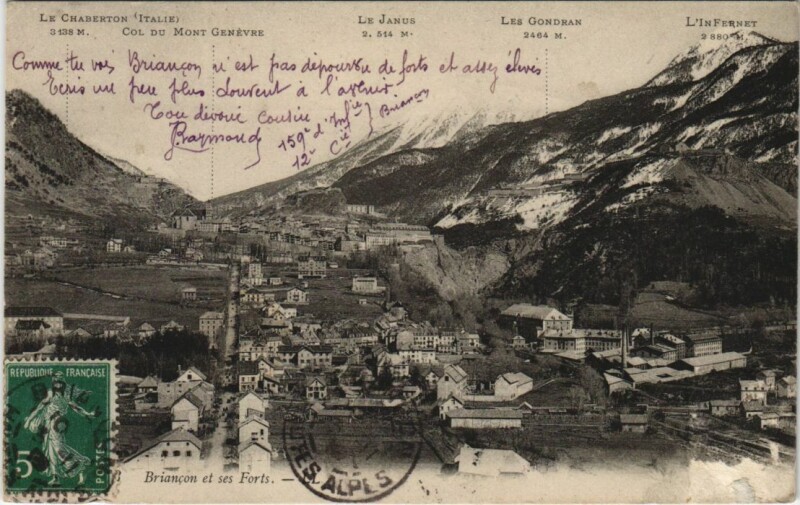 LE CHABERTON (ITALIE)
3138 M.
COL DU MONT GENÈVRE
LE JANUS
2.514 M.
LES GONDRAN
2464 M.
L'INFERNET
2880 M.
Comme tu vois Briançon n'est pas dépourvu de forts et assez élevés
Ecris un peu plus souvent à l'avenir.
Ton dévoué cousin
Raymond
159e d'Infie
12e Cie
Briançon
RÉPUBLIQUE FRANÇAISE
5
POSTES
Briançon et ses Forts. — LL
TES ALPES